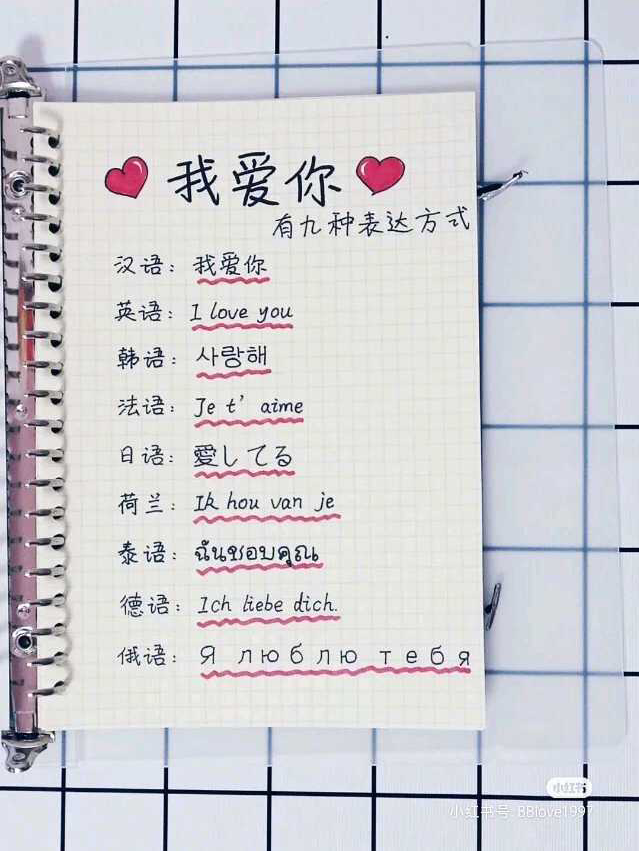 我爱你
有九种表达方式
汉语：我爱你
英语：I love you
韩语：사랑해
法语：Je t' aime
日语：愛してる
荷兰：Ik hou van je
泰语：ฉันชอบคุณ
德语：Ich liebe dich.
俄语：Я люблю тебя
小红书
小红书号：BBlove1997